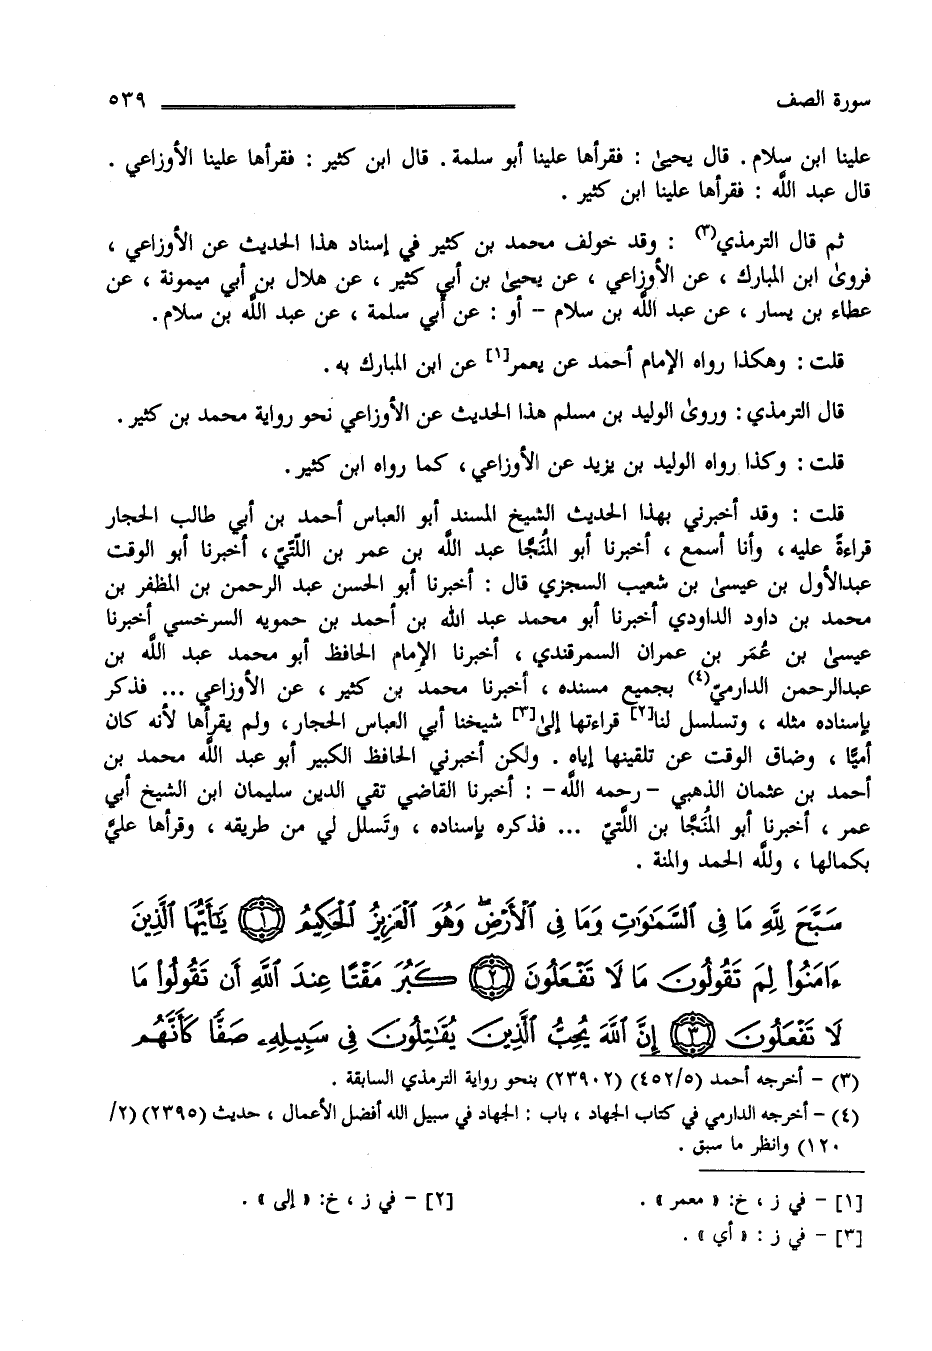 سورة الصف ٥٣٩
علينا ابن سلام. قال يحيىٰ : فقرأها علينا أبو سلمة. قال ابن كثير : فقرأها علينا الأوزاعي .
قال عبد اللَّه : فقرأها علينا ابن كثير .
ثم قال الترمذي(٣) : وقد خولف محمد بن كثير في إسناد هذا الحديث عن الأوزاعي ،
فروىٰ ابن المبارك ، عن الأوزاعي ، عن يحيىٰ بن أبي كثير ، عن هلال بن أبي ميمونة ، عن
عطاء بن يسار ، عن عبد اللَّه بن سلام – أو : عن أبي سلمة ، عن عبد اللَّه بن سلام.
قلت : وهكذا رواه الإمام أحمد عن يعمر[١] عن ابن المبارك به .
قال الترمذي : وروىٰ الوليد بن مسلم هذا الحديث عن الأوزاعي نحو رواية محمد بن كثير .
قلت : وكذا رواه الوليد بن يزيد عن الأوزاعي ، كما رواه ابن كثير .
قلت : وقد أخبرني بهذا الحديث الشيخ المسند أبو العباس أحمد بن أبي طالب الحجار
قراءةً عليه ، وأنا أسمع ، أخبرنا أبو المُنَجَّا عبد اللَّه بن عمر بن اللَّتِّيّ ، أخبرنا أبو الوقت
عبدالأول بن عيسىٰ بن شعيب السجزي قال : أخبرنا أبو الحسن عبد الرحمن بن المظفر بن
محمد بن داود الداودي أخبرنا أبو محمد عبد الله بن أحمد بن حمويه السرخسي أخبرنا
عيسىٰ بن عُمَر بن عمران السمرقندي ، أخبرنا الإمام الحافظ أبو محمد عبد اللَّه بن
عبدالرحمن الدارميّ(٤) بجميع مسنده ، أخبرنا محمد بن كثير ، عن الأوزاعي ... فذكر
بإسناده مثله ، وتسلسل لنا[٢] قراءتها إلىٰ[٣] شيخنا أبي العباس الحجار ، ولم يقرأها لأنه كان
أميًّا ، وضاق الوقت عن تلقينها إياه . ولكن أخبرني الحافظ الكبير أبو عبد اللَّه محمد بن
أحمد بن عثمان الذهبي – رحمه اللَّه – : أخبرنا القاضي تقي الدين سليمان ابن الشيخ أبي
عمر ، أخبرنا أبو المُنَجَّا بن اللَّتيّ ... فذكره بإسناده ، وتَسلل لي من طريقه ، وقرأها عليَّ
بكمالها ، وللَّه الحمد والمنة .
سَبَّحَ لِلَّهِ مَا فِي ٱلسَّمَٰوَٰتِ وَمَا فِي ٱلْأَرْضِۖ وَهُوَ ٱلْعَزِيزُ ٱلْحَكِيمُ ۝١ يَٰٓأَيُّهَا ٱلَّذِينَ
ءَامَنُوا۟ لِمَ تَقُولُونَ مَا لَا تَفْعَلُونَ ۝٢ كَبُرَ مَقْتًا عِندَ ٱللَّهِ أَن تَقُولُوا۟ مَا
لَا تَفْعَلُونَ ۝٣ إِنَّ ٱللَّهَ يُحِبُّ ٱلَّذِينَ يُقَٰتِلُونَ فِي سَبِيلِهِۦ صَفًّا كَأَنَّهُم
(٣) – أخرجه أحمد (٤٥٢/٥) (٢٣٩٠٢) بنحو رواية الترمذي السابقة .
(٤) – أخرجه الدارمي في كتاب الجهاد ، باب : الجهاد في سبيل الله أفضل الأعمال ، حديث (٢٣٩٥) (٢/
١٢٠) وانظر ما سبق .
[١] – في ز ، خ: « معمر » . [٢] – في ز ، خ: « إلى » .
[٣] – في ز : « أي » .